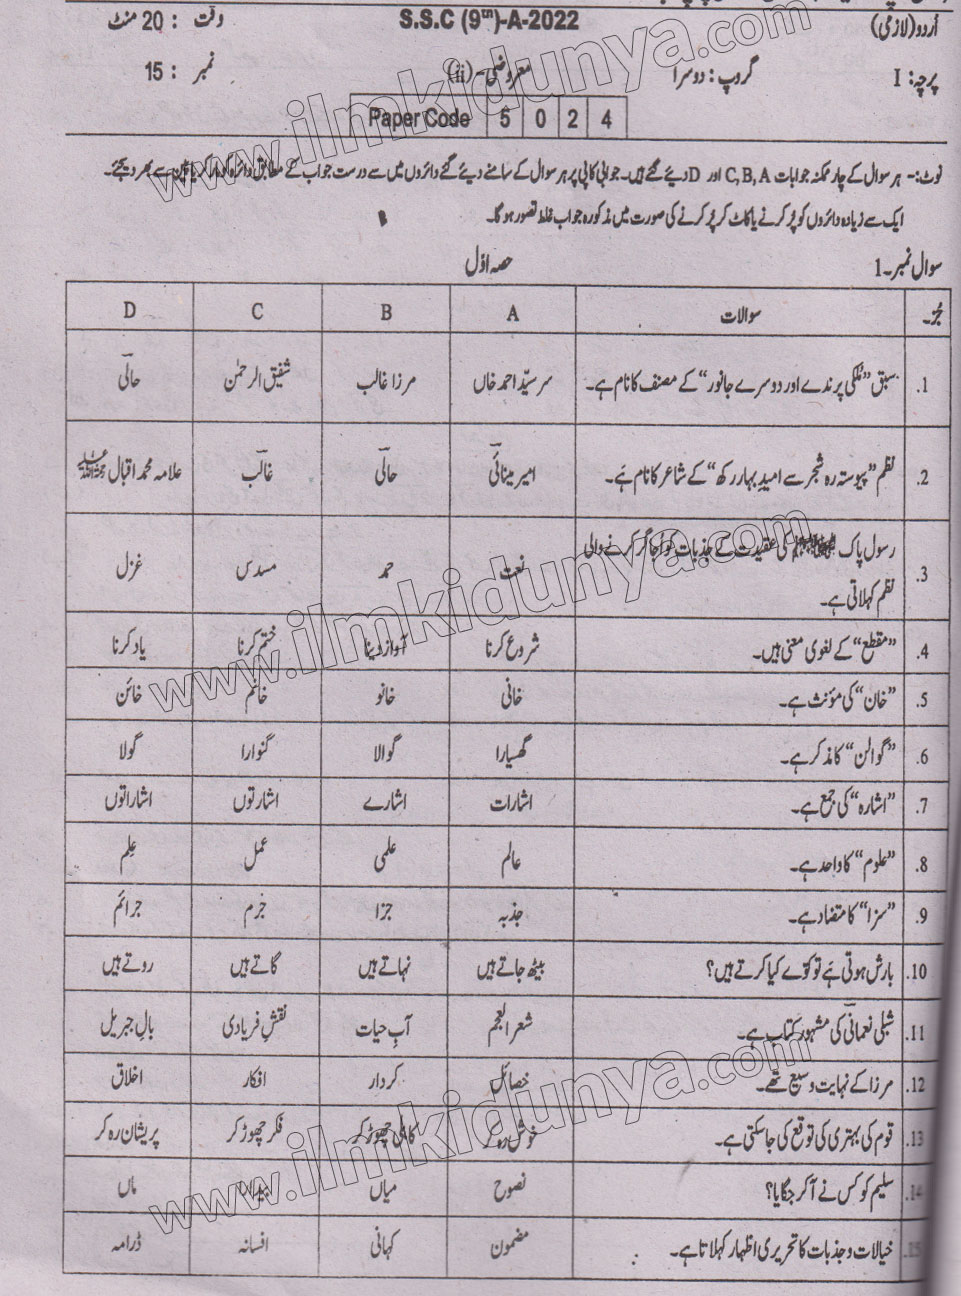 اُردو (لازمی) S.S.C (9th)-A-2022 وقت : 20 منٹ
پرچہ : I گروپ : دوسرا معروضی-(ii) نمبر : 15
Paper Code 5 0 2 4
نوٹ:- ہر سوال کے چار ممکنہ جوابات C, B, A اور D دیئے گئے ہیں۔ جوابی کاپی پر ہر سوال کے سامنے دیئے گئے دائروں میں سے درست جواب کے مطابق دائرہ کو مارکر یا پین سے بھر دیجئے۔
ایک سے زیادہ دائروں کو پُر کرنے یا کاٹ کر پُر کرنے کی صورت میں مذکورہ جواب غلط تصور ہوگا۔
سوال نمبر۔1 حصہ اوّل
جُز۔ سوالات A B C D
1. سبق ”مُلکی پرندے اور دوسرے جانور“ کے مصنف کا نام ہے۔ سر سیّد احمد خاں مرزا غالب شفیق الرحمٰن حالی
2. نظم ”پیوستہ رہ شجر سے امیدِ بہار رکھ“ کے شاعر کا نام ہے۔ امیر مینائی حالی غالب علامہ محمد اقبال رحمۃ اللہ علیہ
3. رسول پاک ﷺ کی عقیدت کے جذبات کو اجاگر کرنے والی
نظم کہلاتی ہے۔ نعت حمد مسدس غزل
4. ”مقطع“ کے لغوی معنی ہیں۔ شروع کرنا آواز دینا ختم کرنا یاد کرنا
5. ”خان“ کی مؤنث ہے۔ خانی خانو خانم خائن
6. ”گوالن“ کا مذکر ہے۔ گھسیارا گوالا گنوارا گولا
7. ”اشارہ“ کی جمع ہے۔ اشارات اشارے اشارتوں اشاراتوں
8. ”علوم“ کا واحد ہے۔ عالم علمی عمل عِلم
9. ”سزا“ کا متضاد ہے۔ جذبہ جزا جُرم جرائم
10. بارش ہوتی ہے تو کوّے کیا کرتے ہیں؟ بیٹھ جاتے ہیں نہاتے ہیں گاتے ہیں روتے ہیں
11. شبلی نعمانی کی مشہور کتاب ہے۔ شعر العجم آبِ حیات نقشِ فریادی بالِ جبریل
12. مرزا کے نہایت وسیع تھے۔ خصائل کردار افکار اخلاق
13. قوم کی بہتری کی توقع کی جاسکتی ہے۔ خوش رہ کر کاہلی چھوڑ کر فکر چھوڑ کر پریشان رہ کر
14. سلیم کو کس نے آ کر جگایا؟ نصوح میاں بیدارا ماں
15. خیالات و جذبات کا تحریری اظہار کہلاتا ہے۔ مضمون کہانی افسانہ ڈرامہ
www.ilmkidunya.com
www.ilmkidunya.com
www.ilmkidunya.com